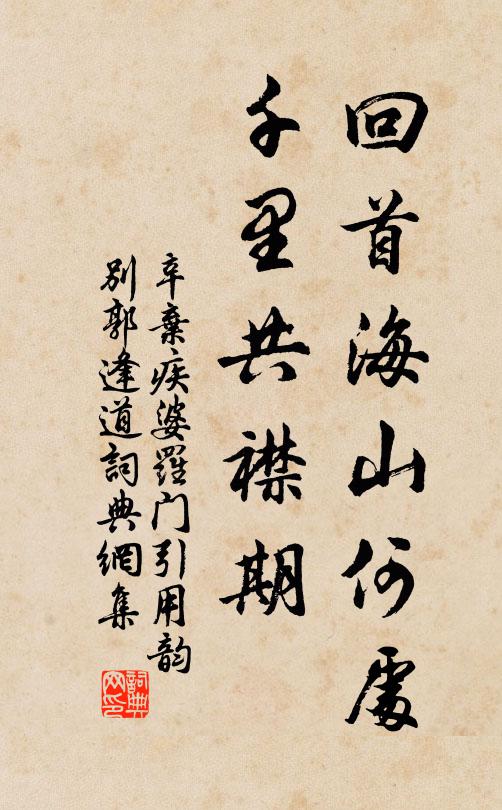 回首海山何處
千里共襟期
辛棄疾婆羅门引用韵
别郭逢道詞典網集
詞典
网印